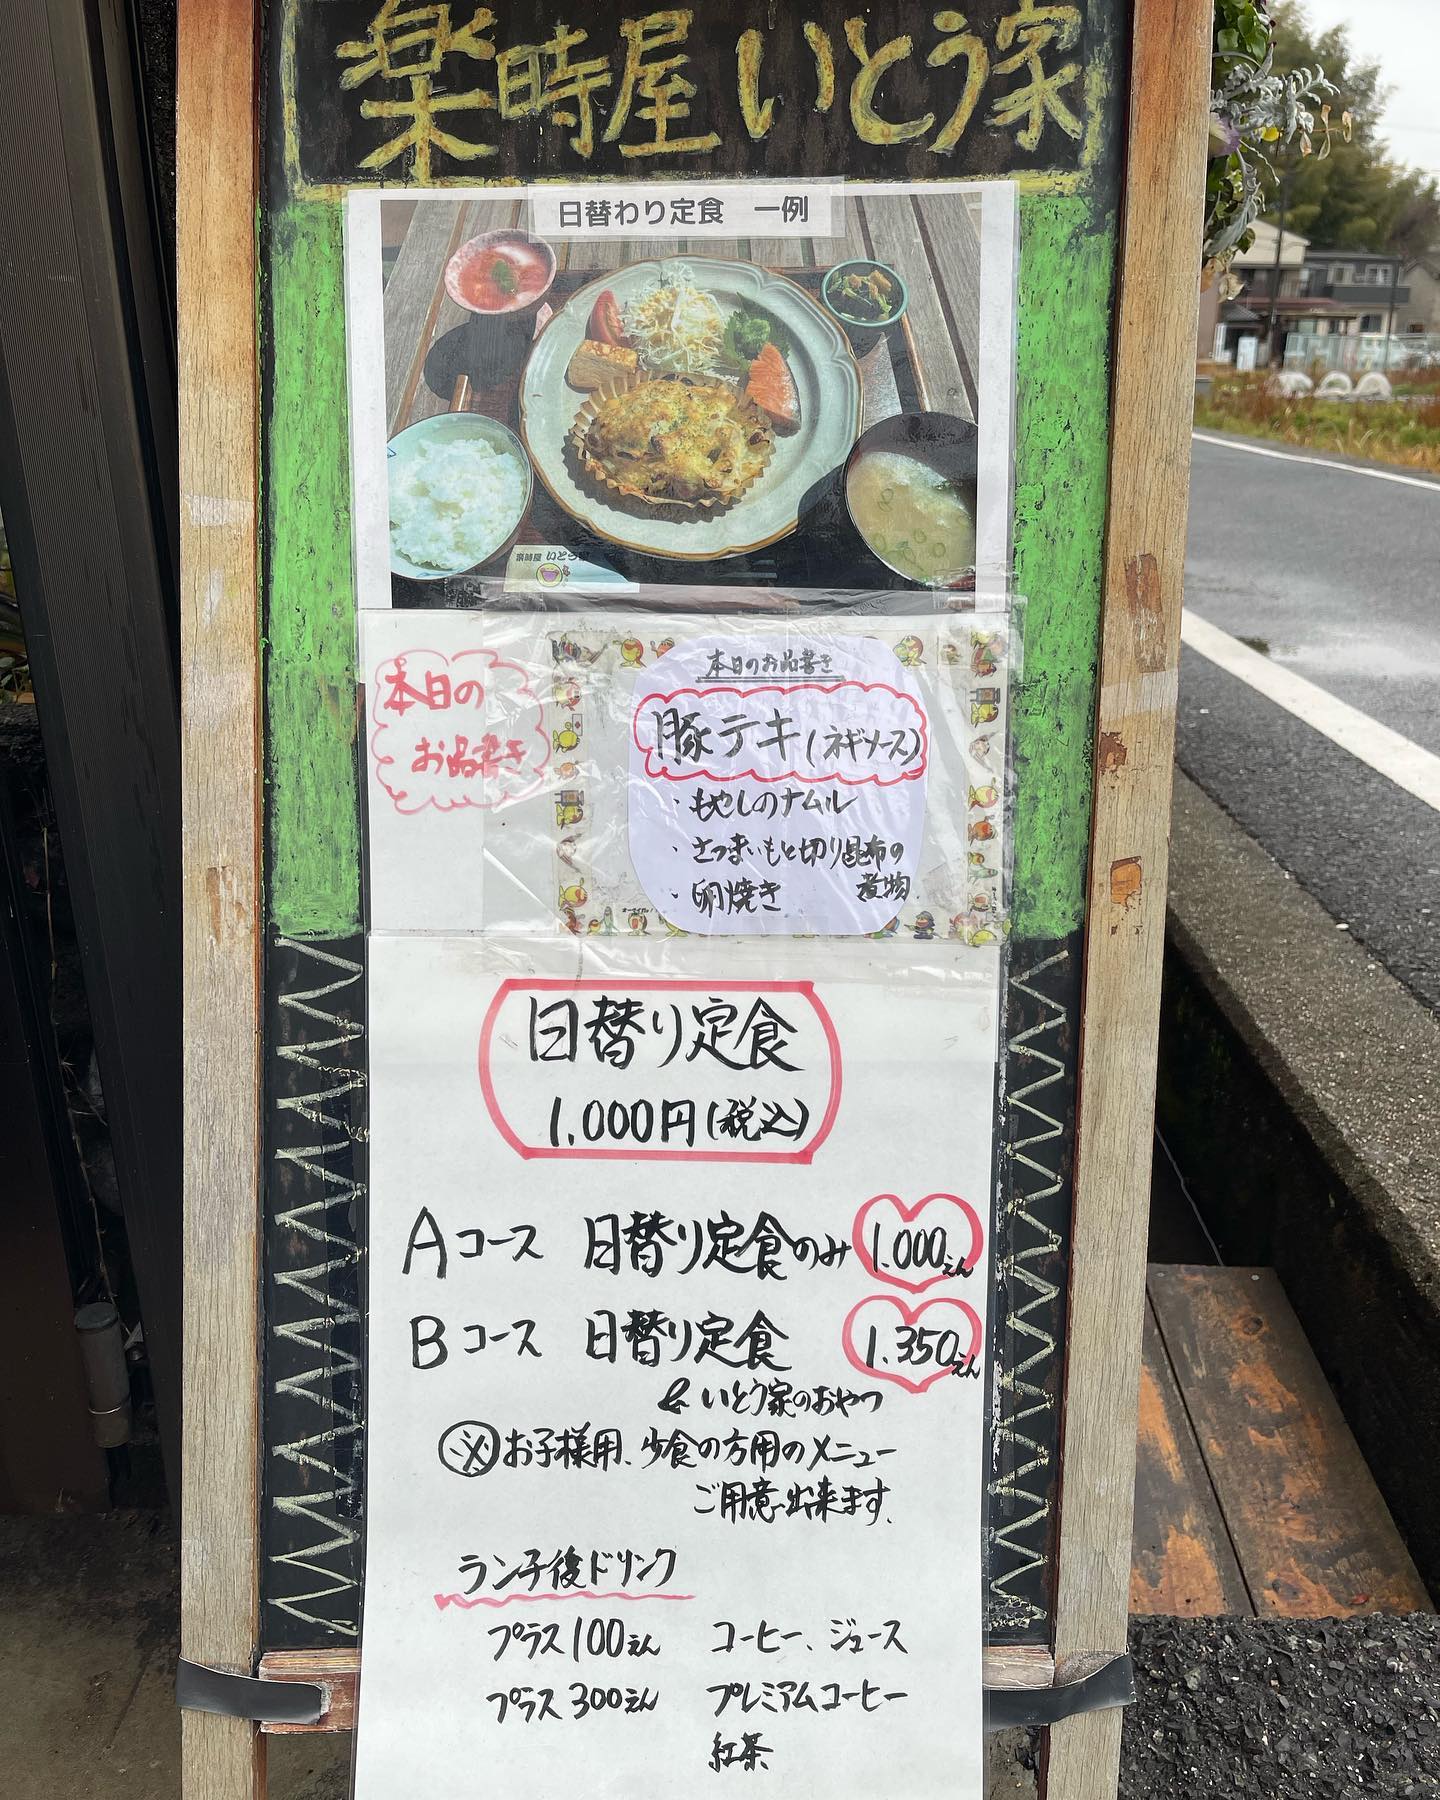 楽時屋 いとう家
日替わり定食 一例
楽時屋 いとう家
本日の
お品書き
本日のお品書き
豚テキ(ネギソース)
・もやしのナムル
・さつまいもと切り昆布の
煮物
・卵焼き
日替り定食
1,000円(税込)
Aコース 日替り定食のみ 1.000えん
Bコース 日替り定食 1.350えん
& いとう家のおやつ
※お子様用、少食の方用のメニュー
ご用意出来ます。
ランチ後ドリンク
プラス100えん コーヒー、ジュース
プラス300えん プレミアムコーヒー
紅茶